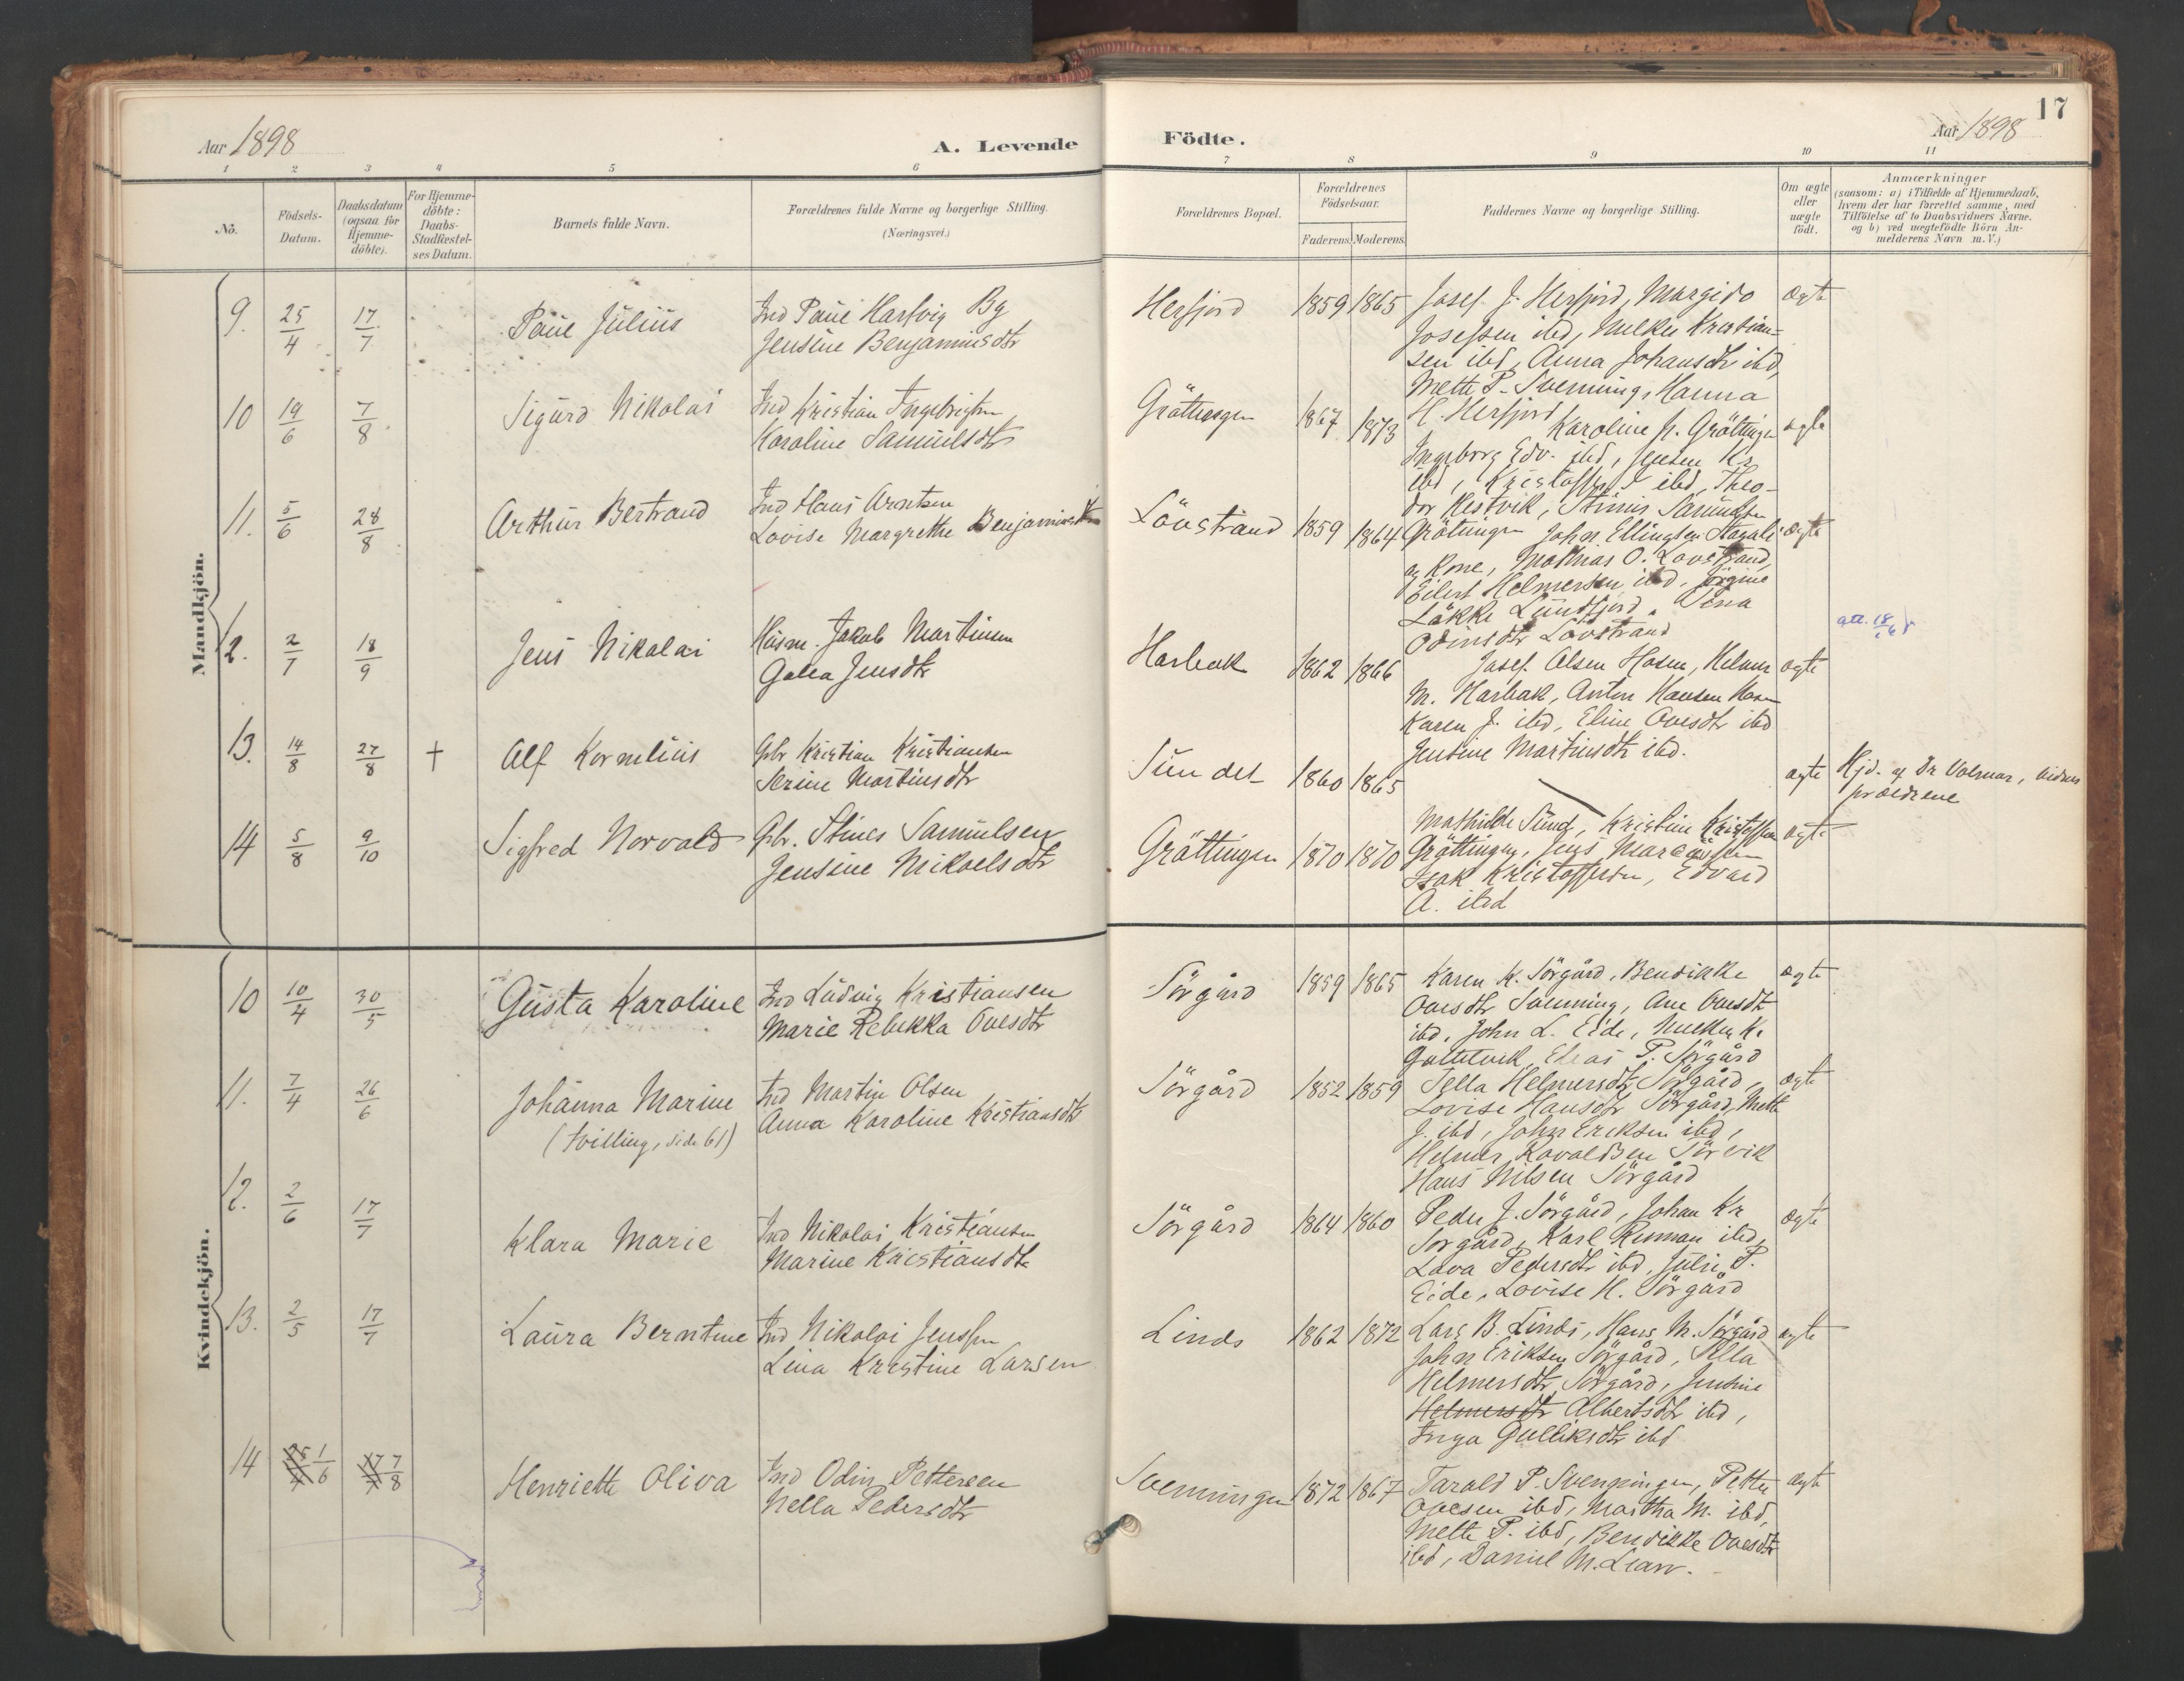 Aar 1898
A. Levende
Födte.
Aar 1898
17
1 2 3 4 5 6 7 8 9 10 11
No.
Födsels-Datum.
Daabsdatum (ogsaa for Hjemmedöbte).
For Hjemmedöbte: Daabs-Stadfæstelses Datum.
Barnets fulde Navn.
Forældrenes fulde Navne og borgerlige Stilling. (Næringsvei.)
Forældrenes Bopæl.
Forældrenes Födselsaar.
Faderens. Moderens.
Faddernes Navne og borgerlige Stilling.
Om ægte eller uægte födt.
Anmærkninger
(saasom: a) i Tilfælde af Hjemmedaab, hvem der har forrettet samme, med Tilföielse af to Daabsvidners Navne. og b) ved uægtefödte Börn Anmelderens Navn m. V.)
Mandkjön.
9. 25/4 17/7 Paul Julius
Ind Paul Hartvig By
Jensine Benjaminsdtr
Herfjord 1859 1865
Josef J. Herfjord, Margido
Josefsen ibd, Kristian-
sen ibd, Anna Johansdtr ibd,
Mette P. Svenning, Hanna
H. Herfjord
ægte
10 19/6 7/8 Sigurd Nikolai
Ind Kristian Ingebrigtsen
Karoline Samuelsdtr
Gröttingen 1867 1873
Karoline P. Gröttingen
Ingeborg Edv. ibd, Jensen Kr.
ibd, Kristoffer J ibd, Theo-
dor Hestvik, Stinus Samuelsen
Grötingen
ægte
11. 5/6 28/8 Arthur Bertrand
Ind Hans Arntsen
Lovise Margrethe Benjaminsdtr
Lövstrand 1859 1864
John Ellingsen
og Kone, Mathias O. Lövstrand,
Eilert Helmersen ibd, Jörgine
Lökke Sundfjord, Tina
Odinsdtr Lövstrand
ægte
12. 2/7 18/9 Jens Nikolai
Husm. Jakob Martinsen
Galea Jensdtr
Harbak 1862 1866
Josef Olsen Hosen, Helmer
M. Harbak, Anton Hansen Hosen
Karen J. ibd, Eline Ovesdtr ibd
Jensine Martinsdtr ibd.
ægte
att. 18/1
13. 14/8 27/8 † Alf Kornelius
Gbr Kristian Kristiansen
Serine Martinsdtr
Sundet 1860 1865
ægte
Hjd. af Dr Volmar, vidner
forældrene
14 5/8 9/10 Sigfred Norvald
Gbr. Stinus Samuelsen
Jensine Mikaelsdtr
Gröttingen 1870 1870
Mathilde Sund, Kristine Kristoffersen
Gröttingen, Jens Marcussen
Isak Kristoffersen, Edvard
A. ibd
ægte
Kvindekjön.
10 10/4 30/5 Gusta Karoline
Ind Ludvig Kristiansen
Marie Rebekka Ovesdtr
Sörgård 1859 1865
Karen K. Sörgård, Bendikke
Ovesdtr Svenning, Ane Ovesdtr
ibd, John L. Eide, K.
Elias P. Sörgård
ægte
11. 7/4 26/6 Johanna Marine
(tvilling, side 61)
Ind Martin Olsen
Anna Karoline Kristiansdtr
Sörgård 1852 1859
Sella Helmersdtr Sörgård,
Lovise Hansdtr Sörgård, Mette
J. ibd, John Eriksen ibd,
Helmer Ravaldsen Sörvik
Hans Nilsen Sörgård
ægte
12. 2/6 17/7 Klara Marie
Ind Nikolai Kristiansen
Marine Kristiansdtr
Sörgård 1864 1860
Peder J. Sörgård, Johan Kr
Sorgård, Karl Runnan ibd,
Lava Pedersdtr ibd, Julie P.
Eide, Lovise H. Sörgård
ægte
13. 2/5 17/7 Laura Berntine
Ind Nikolai Jenssen
Lina Kristine Larsen
Linds 1862 1872
Lars B. Linds, Hans M. Sörgård
John Eriksen Sörgård, Sella
Helmersdtr Sörgård, Jensine
Helmersdtr Albertsdtr ibd,
Inga Gulliksdtr ibd
ægte
14 25/4 1/6 17/7 7/8 Henriette Oliva
Ind Odin Pettersen
Nella Pedersdtr
Svenningen 1872 1867
Tarald P. Svenningen, Petter
Ovesen ibd, Martha M. ibd,
Mette P. ibd, Bendikke Ovesdtr
ibd, Daniel M. Lian.
ægte